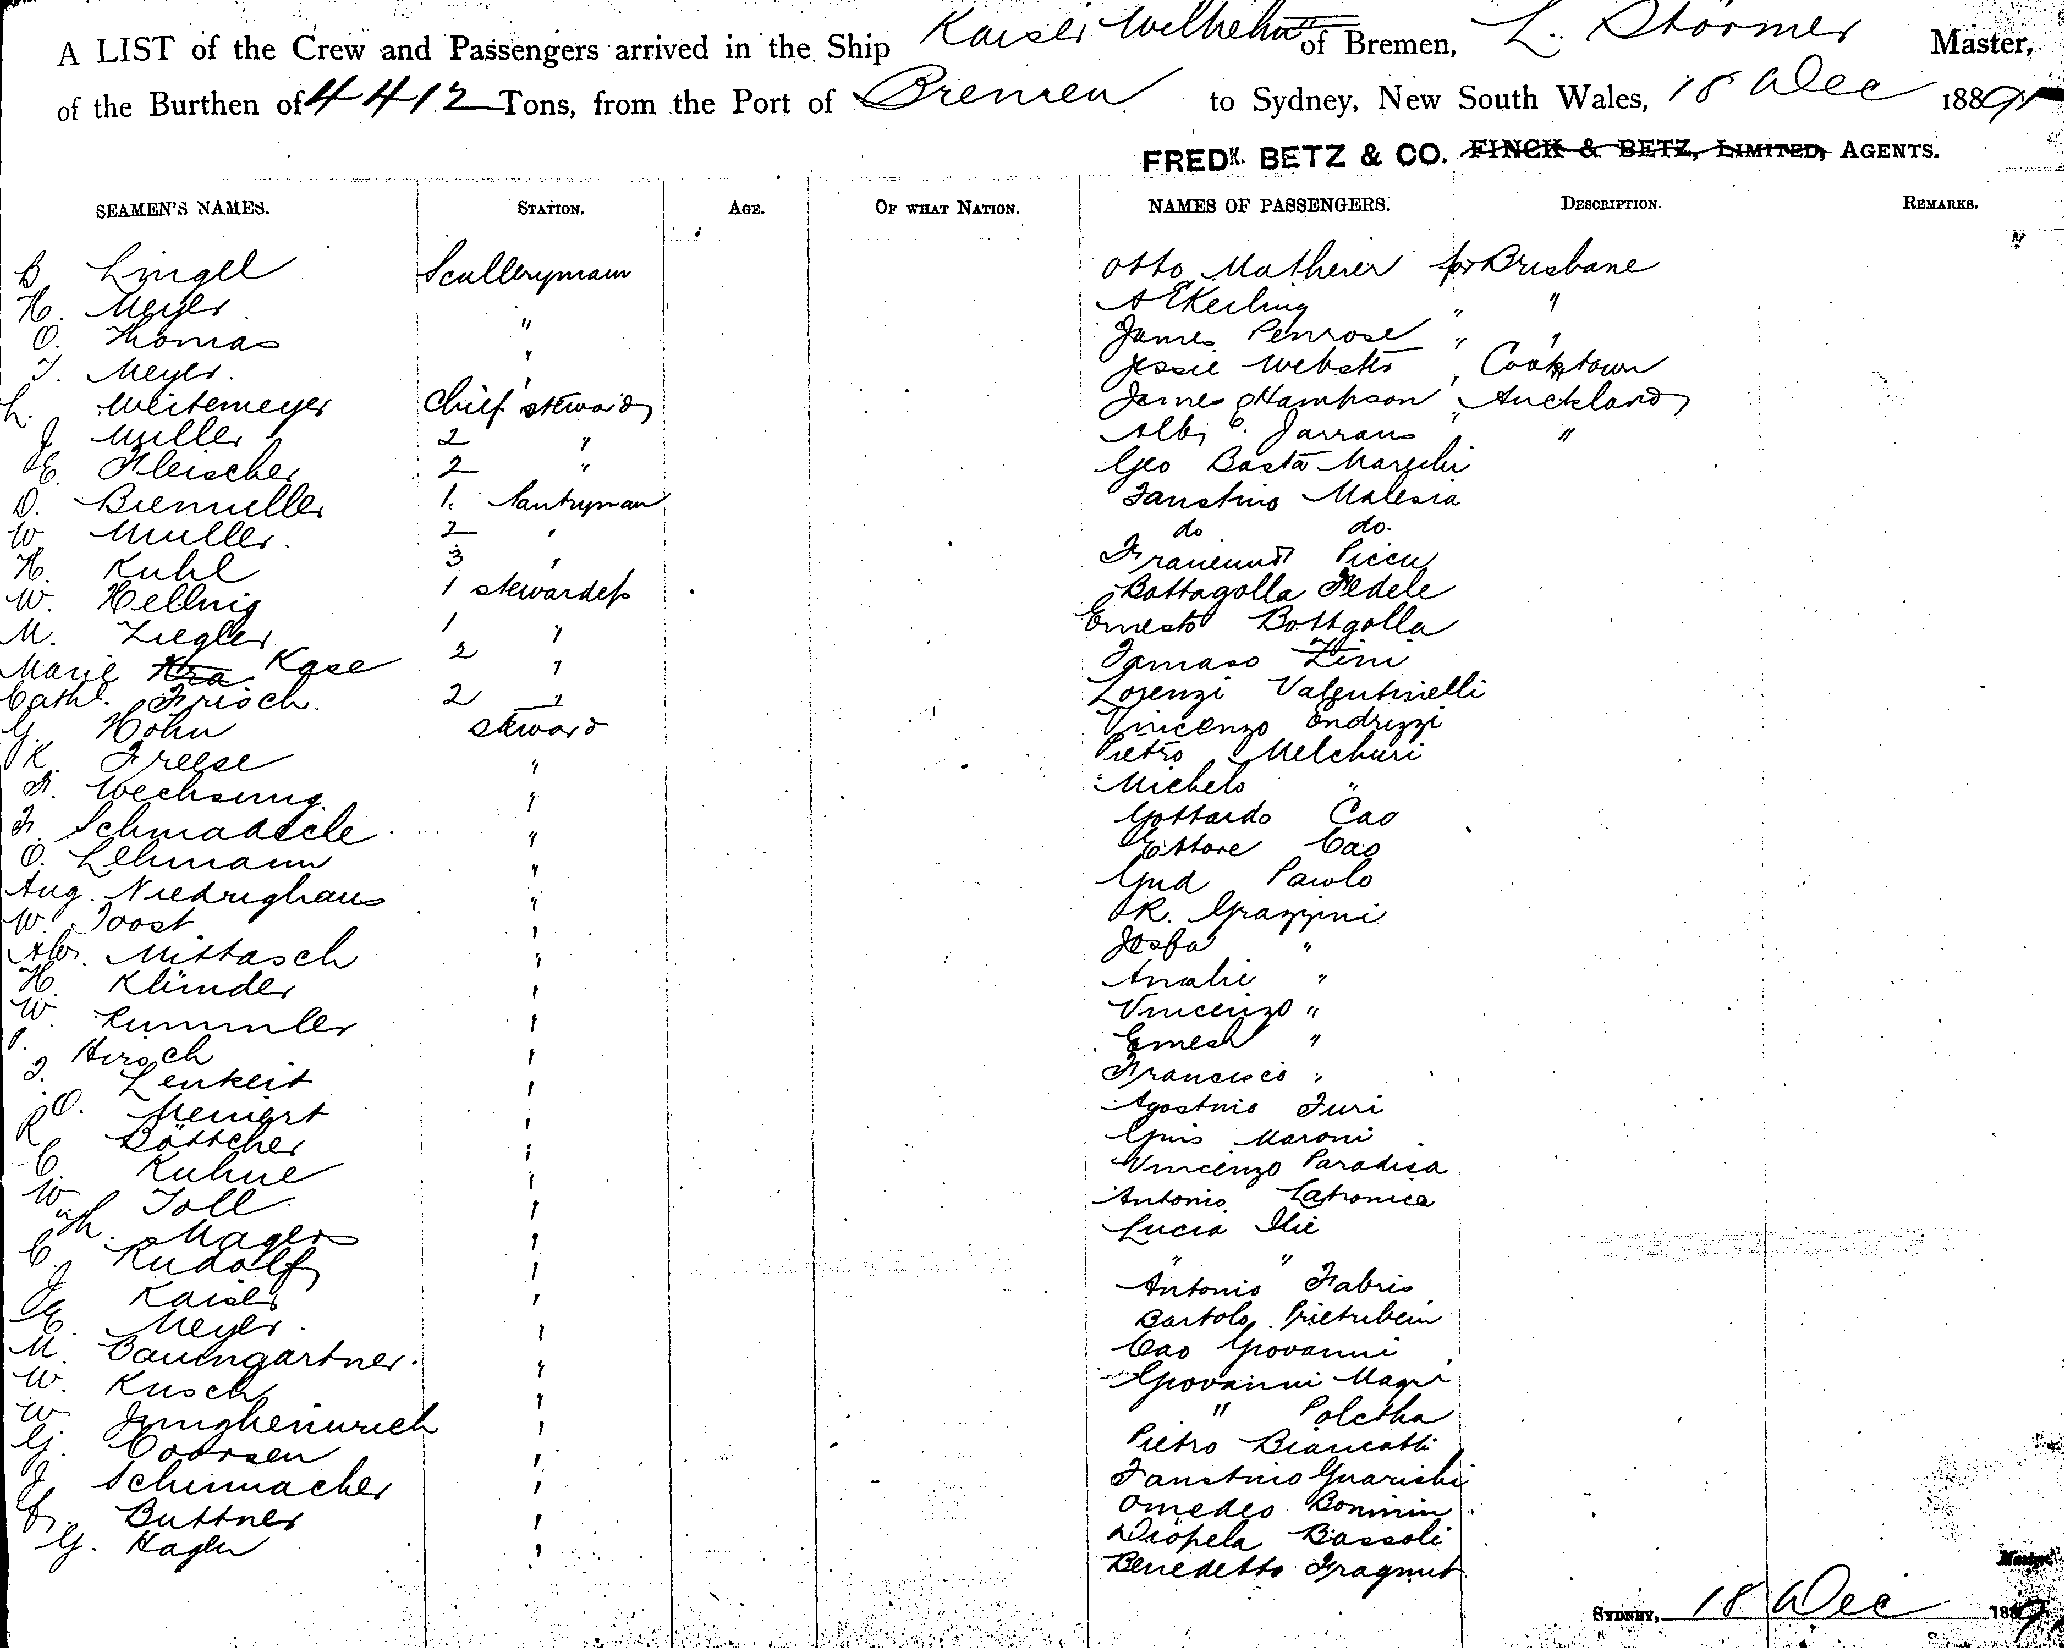 A LIST of the Crew and Passengers arrived in the Ship Kaiser Wilhelm of Bremen, L. Störmer Master,
of the Burthen of 4412 Tons, from the Port of Bremen to Sydney, New South Wales, 18 Dec 1889
FREDK. BETZ & CO. FINCK & BETZ, LIMITED, AGENTS.
SEAMEN'S NAMES. STATION. AGE. OF WHAT NATION. NAMES OF PASSENGERS. DESCRIPTION. REMARKS.
B Lingel Scullerymann Otto Matherer for Brisbane
H. Meyer " " "
O. Thomas " James Penrose " "
J. Meyer. " Jessie Webster " Cooktown
L. Weitemeyer Chief steward James Hampson " Auckland
J Müller 2 " Alb. C. Jarrans "
E. Fleischer 2 " Geo Basta
D. Biermuller 1. Pantryman Faustino Malesia
W Muller. 2 " do do.
H. Kuhl 3 "
W. Hellwig 1 stewardess Bottagolla Fedele
M. Ziegler 1 " Ernesto Bottgolla
Marie Kra Kase 2 " Tomaso Zini
Cath. Frisch. 2 " Lorenzi Valentinelli
G. Höhn steward Vincenzo Endrizzi
K. Freese " Pietro Melchiori
F. Wechsung. " Michele "
F. Schmadtcle " Gottardo Cao
O. Lehmann " Ettore Cao
Aug. Niedrighaus " Paolo
W. Joost " R. Grazzini
Alb. Mittasch " "
H. Klünder " Analie "
W. Kummler " Vincenzo "
P. Hirsch " "
J. Lenkeit " Francisco "
O. Meinert " Agostino Turi
R Böttcher " Maroni
C. Kuhne " Vincenzo Paradisa
W Toll " Antonio Latronica
Mager " Lucia
C Rudolf " " "
J Kaiser " Antonio Fabris
E. Meyer. " Bartolo
M. Baumgartner. " Cao Giovanni
W. Kusch " Giovanni Magri
W Jungheinrich " " Poletha
G. Coorsen " Pietro Biancotti
J Schumacher " Faustino Guarischi
Buttner " Omedeo Bonimin
G. Hagen " Bassoli
Benedetto Fragnut
SYDNEY, 18 Dec